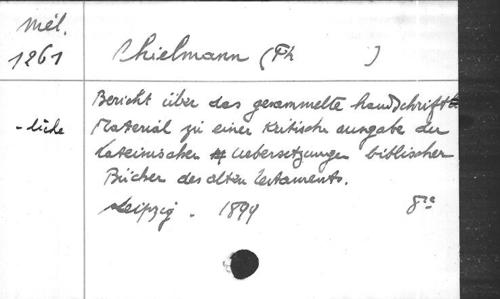 Mél.
1261
Thielmann (Ph )
Bericht über das gesammelte handschrift
- liche
Material zu einer kritische ausgabe der
lateinischen Uebersetzungen biblischer
Bücher des alten Testaments.
Leipzig. 1899 8°